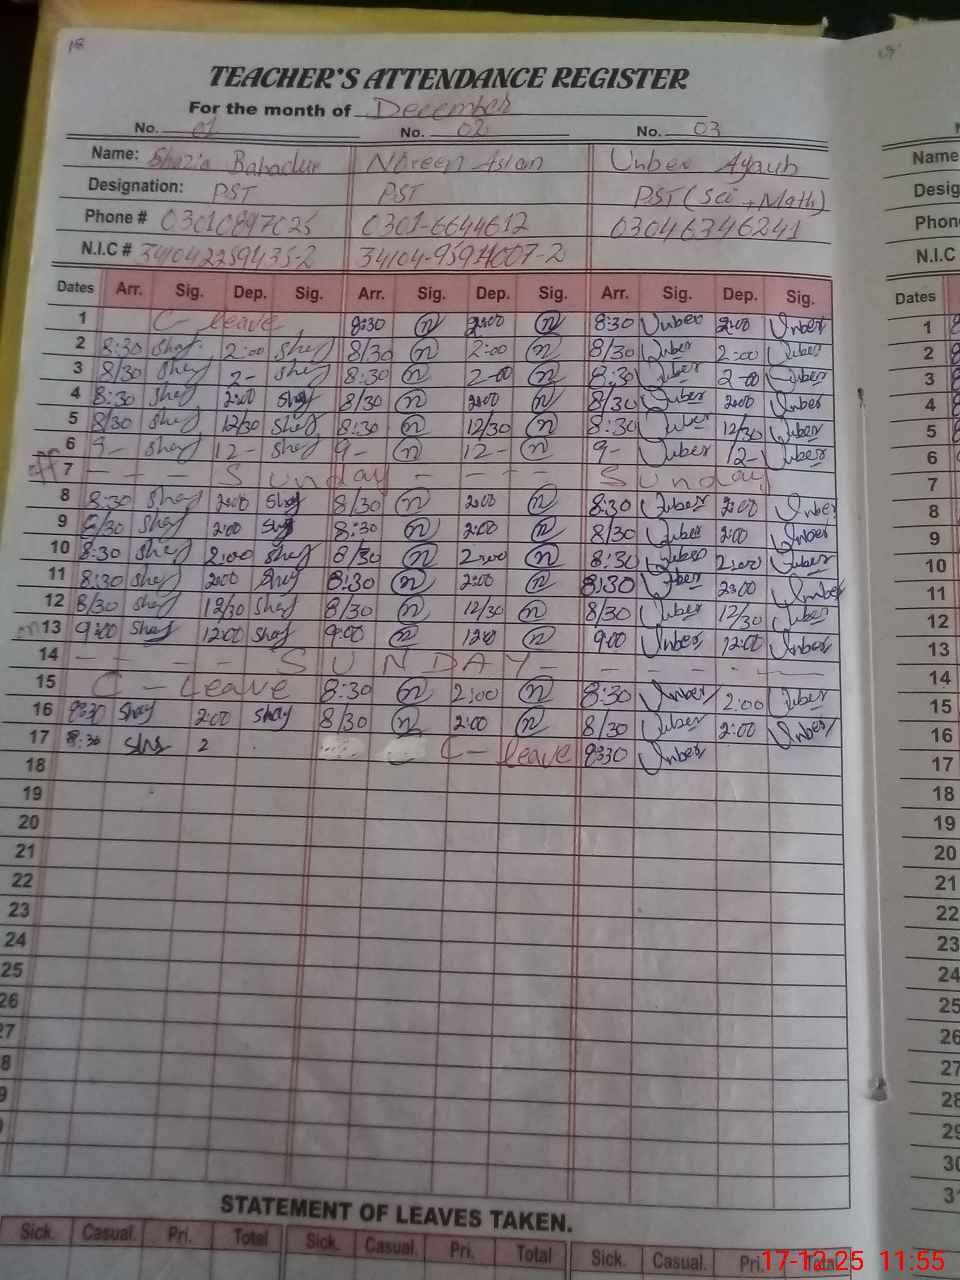 18
TEACHER'S ATTENDANCE REGISTER
For the month of December
No. 01 No. 02 No. 03
Name: Shazia Bahadur Noreen Aslan Unber Ayaub Name
Designation: PST PST PST (Sci + Math) Desig
Phone # 0301-6644612 03046346241 Phon
N.I.C # 34104-9591007-2 N.I.C
Dates Arr. Sig. Dep. Sig. Arr. Sig. Dep. Sig. Arr. Sig. Dep. Sig. Dates
1 C- leave 8:30 n 2:00 n 8:30 Unber 2:00 Unber 1
2 8:30 shaj 2:00 shaj 8/30 n 2:00 n 8/30 Unber 2:00 Unber 2
3 8/30 shaj 2- shaj 8:30 n 2-00 n 8:30 Unber 2-00 Unber 3
4 8:30 shaj 2:00 shaj 8/30 n 2:00 n 8/30 Unber 2:00 Unber 4
5 8/30 shaj 12/30 shaj 8:30 n 12/30 n 8:30 Unber 12/30 Unber 5
6 9- shaj 12- shaj 9- n 12- n 9- Unber 12- Unber 6
7 Sunday Sunday 7
8 8:30 shaj 2:00 shaj 8/30 n 2:00 n 8:30 Unber 2:00 Unber 8
9 8/30 shaj 2:00 shaj 8:30 n 2:00 n 8/30 Unber 2:00 Unber 9
10 8:30 shaj 2:00 shaj 8/30 n 2:00 n 8:30 Unber 2:00 Unber 10
11 8:30 shaj 2:00 shaj 8:30 n 2:00 n 8:30 Unber 2:00 Unber 11
12 8/30 shaj 12/30 shaj 8/30 n 12/30 n 8/30 Unber 12/30 Unber 12
13 9:00 shaj 12:00 shaj 9:00 n 12:00 n 9:00 Unber 12:00 Unber 13
14 SUNDAY 14
15 C- Leave 8:30 n 2:00 n 8:30 Unber 2:00 Unber 15
16 8:30 shaj 2:00 shaj 8/30 n 2:00 n 8/30 Unber 2:00 Unber 16
17 8:30 shaj 2 C- leave 8:30 Unber 17
18 18
19 19
20 20
21 21
22 22
23 23
24 24
25 25
26 26
27 27
8 28
9 29
30
31
STATEMENT OF LEAVES TAKEN.
Sick. Casual. Pri. Total Sick. Casual. Pri. Total Sick. Casual. Pri. Total
17-12-25 11:55